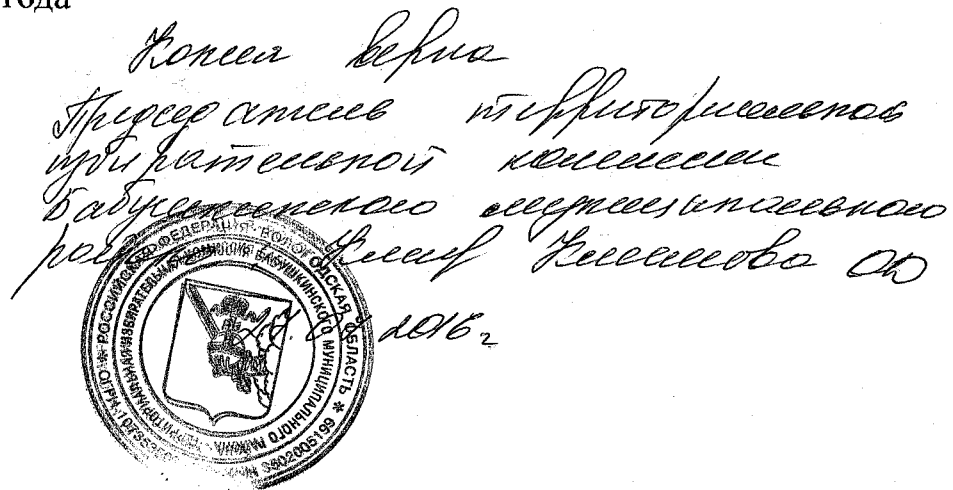 года
Копия верна
Председатель территориальной
избирательной комиссии
Бабушкинского муниципального
района
2016 г
РОССИЙСКАЯ ФЕДЕРАЦИЯ * ВОЛОГОДСКАЯ ОБЛАСТЬ *
ТЕРРИТОРИАЛЬНАЯ ИЗБИРАТЕЛЬНАЯ КОМИССИЯ БАБУШКИНСКОГО МУНИЦИПАЛЬНОГО РАЙОНА
3502005199